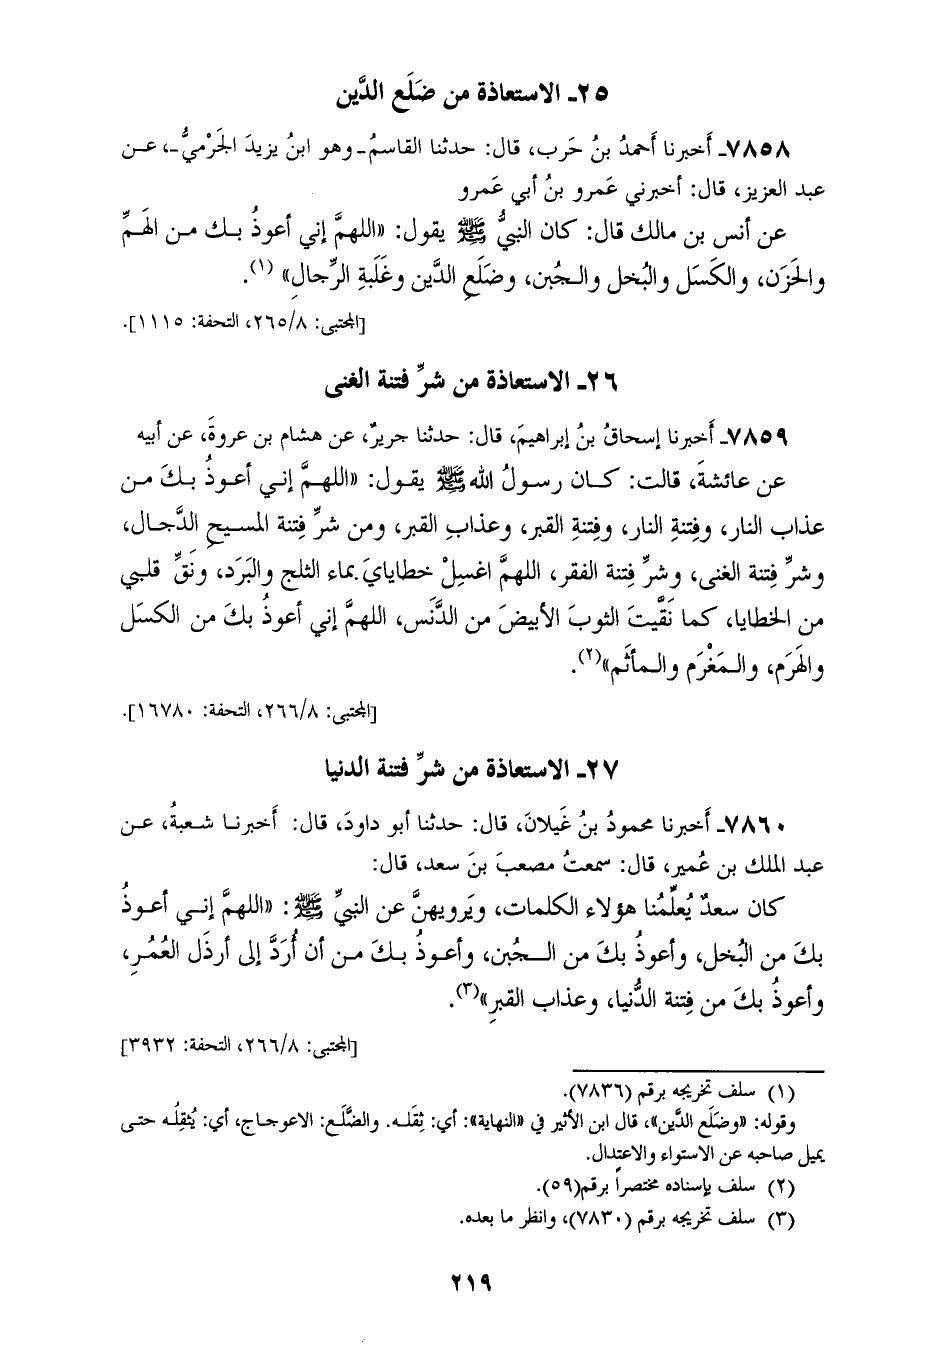 ٢٥ـ الاستعاذة من ضَلَع الدَّين
٧٨٥٨ـ أَخبرنا أَحمدُ بنُ حَرب، قال: حدثنا القاسمُ ـ وهو ابنُ يزيدَ الجَرْميُّ ـ، عـن
عبد العزيز، قال: أخبرني عَمرو بنُ أبي عَمرو
عن أنس بن مالك قال: كان النبيُّ ﷺ يقول: «اللهمَّ إني أعوذُ بـك مـن الهَمِّ
والحَزَن، والكَسَل والبُخل والـجُبن، وضَلَعِ الدَّين وغَلَبةِ الرِّجالِ» (١).
[المجتبى: ٢٦٥/٨، التحفة: ١١١٥].
٢٦ـ الاستعاذة من شرِّ فتنة الغنى
٧٨٥٩ـ أَخبرنا إسحاقُ بنُ إبراهيمَ، قال: حدثنا جريرٌ، عن هشام بن عروةَ، عن أبيه
عن عائشةَ، قالت: كـان رسـولُ الله ﷺ يقـول: «اللهـمَّ إنـي أعـوذُ بـكَ مـن
عذاب النار، وفِتنةِ النار، وفِتنةِ القبر، وعذابِ القبر، ومن شرِّ فِتنة المسـيحِ الدَّجال،
وشرِّ فِتنة الغنى، وشرِّ فِتنة الفقر، اللهمَّ اغسِلْ خطايايَ بماء الثلج والبَرَد، ونَقِّ قلبي
من الخطايا، كما نَقَّيتَ الثوبَ الأبيضَ من الدَّنَس، اللهمَّ إني أعوذُ بكَ من الكسَل
والهَرَم، والـمَغْرَم والـمأثَم»(٢).
[المجتبى: ٢٦٦/٨، التحفة: ١٦٧٨٠].
٢٧ـ الاستعاذة من شرِّ فتنة الدنيا
٧٨٦٠ـ أَخبرنا محمودُ بنُ غَيلانَ، قال: حدثنا أبو داودَ، قال: أَخبرنـا شـعبةُ، عـن
عبد الملك بن عُمير، قال: سمعتُ مصعبَ بنَ سعد، قال:
كان سعدٌ يُعلِّمُنا هؤلاء الكلمات، ويَرويهنَّ عن النبيِّ ﷺ: «اللهمَّ إنـي أعـوذُ
بكَ من البُخل، وأعوذُ بكَ من الـجُبن، وأعـوذُ بـكَ مـن أن أُرَدَّ إلى أرذَل العُمُـرِ،
وأعوذُ بكَ من فِتنة الدُّنيا، وعذاب القبرِ»(٣).
[المجتبى: ٢٦٦/٨، التحفة: ٣٩٣٢]
(١) سلف تخريجه برقم (٧٨٣٦).
وقوله: «وضَلَع الدَّين»، قال ابن الأثير في «النهاية»: أي: ثِقَلـه. والضَّلَـع: الاعوجـاج، أي: يُثقِلُـه حتـى
يميل صاحبه عن الاستواء والاعتدال.
(٢) سلف بإسناده مختصراً برقم(٥٩).
(٣) سلف تخريجه برقم (٧٨٣٠)، وانظر ما بعده.
٢١٩